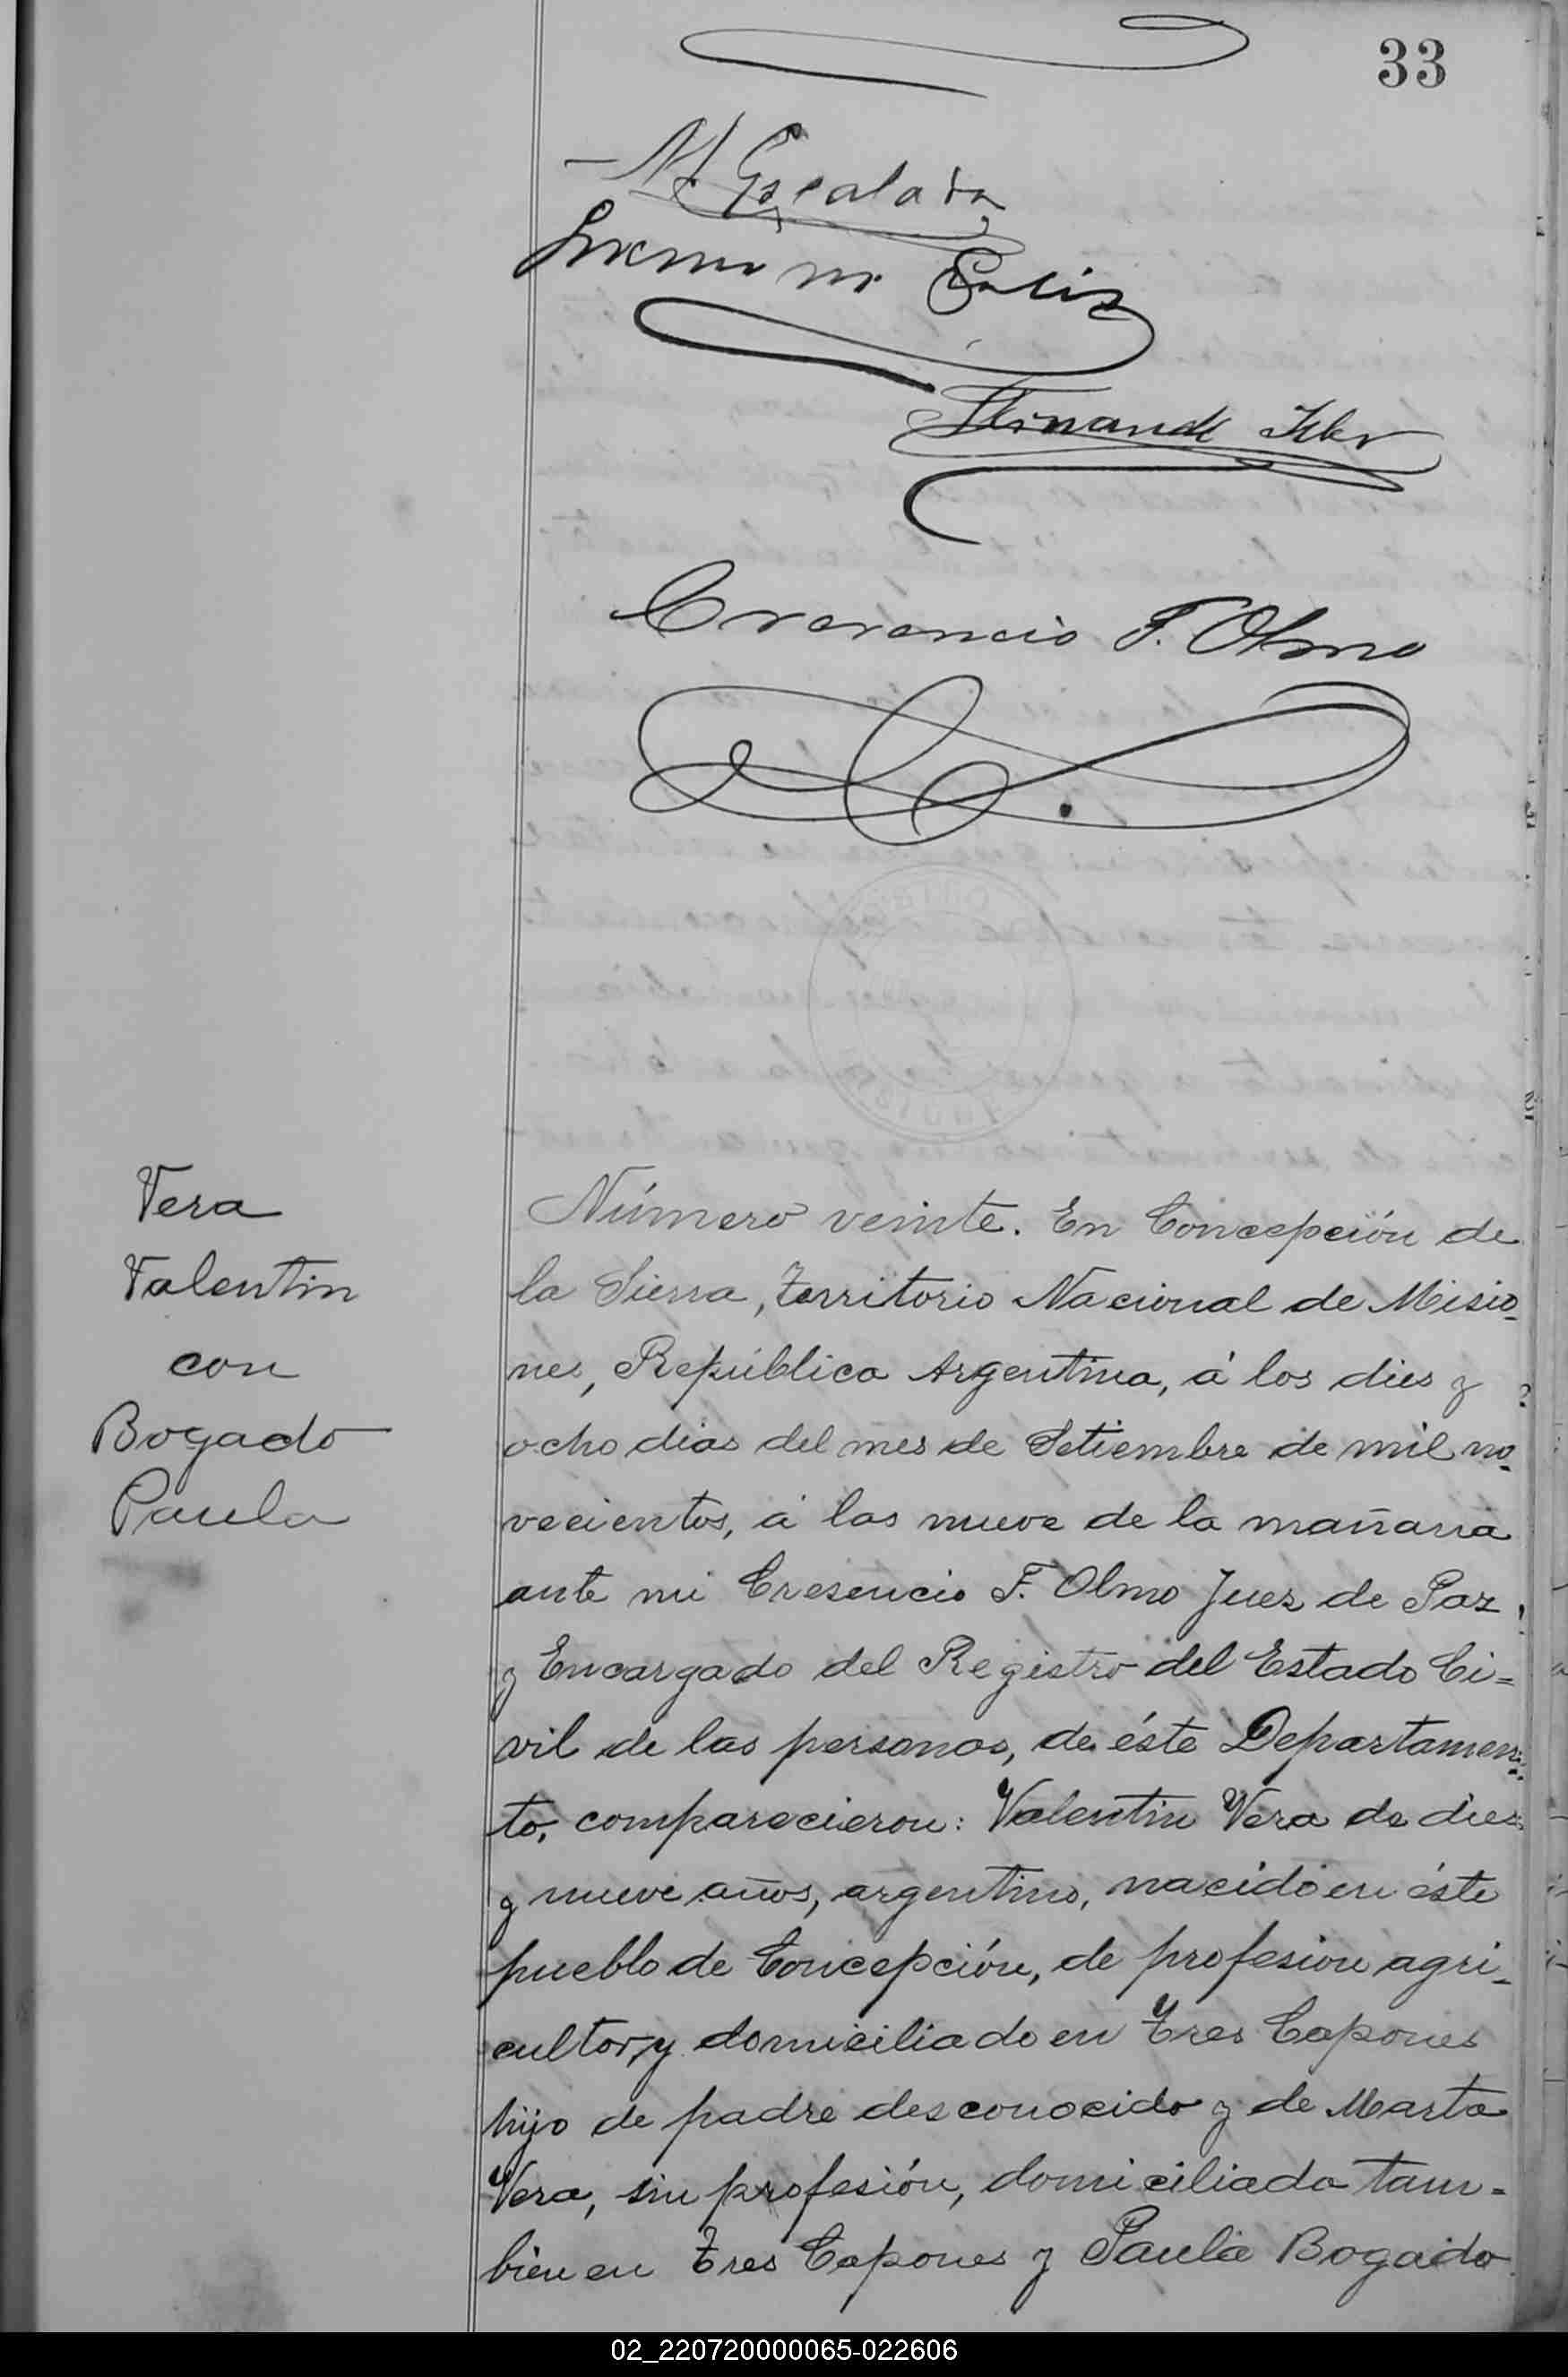 33
M. Escalada
Cresencio F. Olmo
Vera
Valentin
con
Bogado
Paula
Número veinte. En Concepción de
la Sierra, Territorio Nacional de Misio-
nes, República Argentina, á los dies y
ocho dias del mes de Setiembre de mil no-
vecientos, á las nueve de la mañana
ante mi Cresencio F. Olmo Juez de Paz
y Encargado del Registro del Estado Ci=
vil de las personas, de éste Departamen-
to, comparecieron: Valentin Vera de dies
y nueve años, argentino, nacido en éste
pueblo de Concepción, de profesion agri-
cultor, y domiciliado en Tres Capones
hijo de padre desconocido y de Marta
Vera, sin profesión, domiciliada tam-
bien en Tres Capones y Paula Bogado
02_220720000065-022606